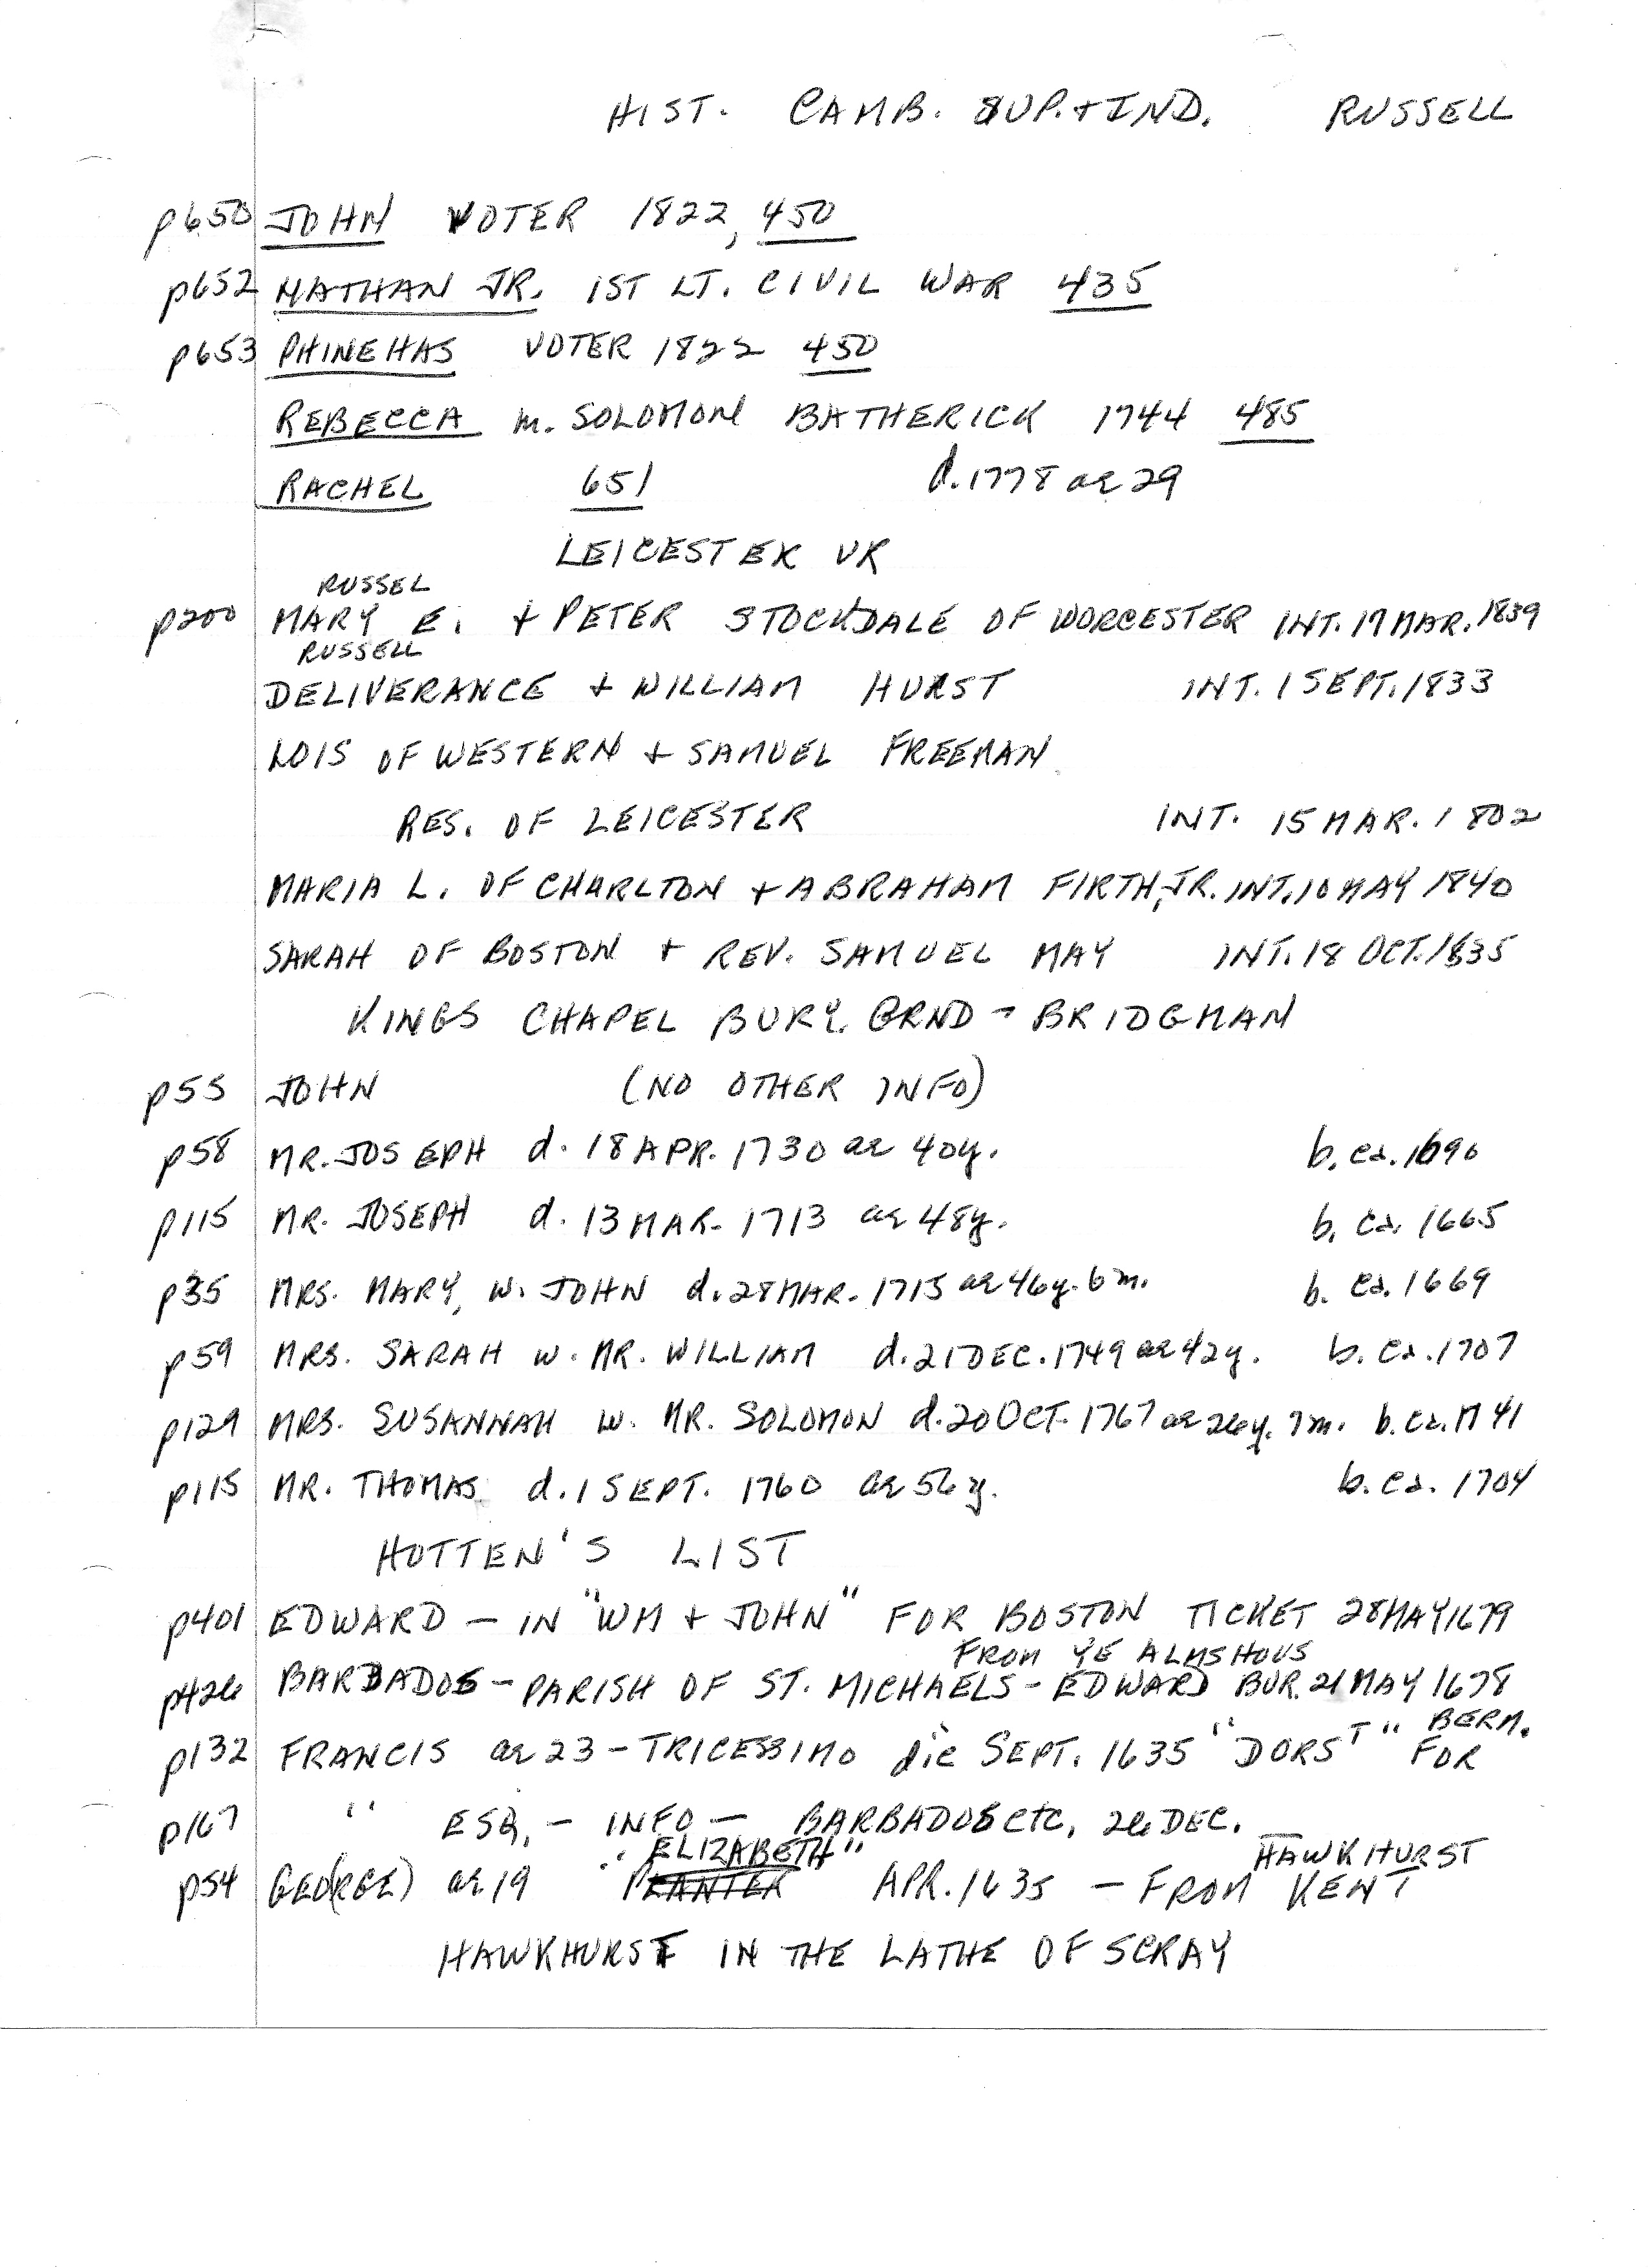 HIST. CAMB. SUP. + IND. RUSSELL
p650 JOHN VOTER 1822, 450
p652 NATHAN JR. 1ST LT. CIVIL WAR 435
p653 PHINEHAS VOTER 1822 450
REBECCA m. SOLOMON BATHERICK 1744 485
RACHEL 651 d. 1778 ae 29
LEICESTER VR
RUSSEL
p200 MARY E. + PETER STOCKDALE OF WORCESTER INT. 17 MAR. 1839
RUSSELL
DELIVERANCE + WILLIAM HURST INT. 1 SEPT. 1833
LOIS OF WESTERN + SAMUEL FREEMAN
RES. OF LEICESTER INT. 15 MAR. 1802
MARIA L. OF CHARLTON + ABRAHAM FIRTH, JR. INT. 10 MAY 1840
SARAH OF BOSTON + REV. SAMUEL MAY INT. 18 OCT. 1835
KINGS CHAPEL BURY. GRND - BRIDGMAN
p55 JOHN (NO OTHER INFO)
p58 MR. JOSEPH d. 18 APR. 1730 ae 40y. b. ca. 1690
p115 MR. JOSEPH d. 13 MAR. 1713 ae 48y. b. ca. 1665
p35 MRS. MARY, W. JOHN d. 28 MAR. 1715 ae 46y. 6m. b. ca. 1669
p59 MRS. SARAH W. MR. WILLIAM d. 21 DEC. 1749 ae 42y. b. ca. 1707
p129 MRS. SUSANNAH W. MR. SOLOMON d. 20 OCT. 1767 ae 26y. 7m. b. ca. 1741
p115 MR. THOMAS d. 1 SEPT. 1760 ae 56y. b. ca. 1704
HOTTEN'S LIST
p401 EDWARD - IN "WM + JOHN" FOR BOSTON TICKET 28 MAY 1679
FROM YE ALMSHOUS
p426 BARBADOS - PARISH OF ST. MICHAELS - EDWARD BUR. 21 MAY 1678
p132 FRANCIS ae 23 - TRICESSIMO die SEPT. 1635 "DORST" FOR BERM.
p167 " ESQ. - INFO - BARBADOS etc, 26 DEC.
"ELIZABETH" HAWKHURST
p54 GEO(RGE) ae 19 PLANTER APR. 1635 - FROM KENT
HAWKHURST IN THE LATHE OF SCRAY